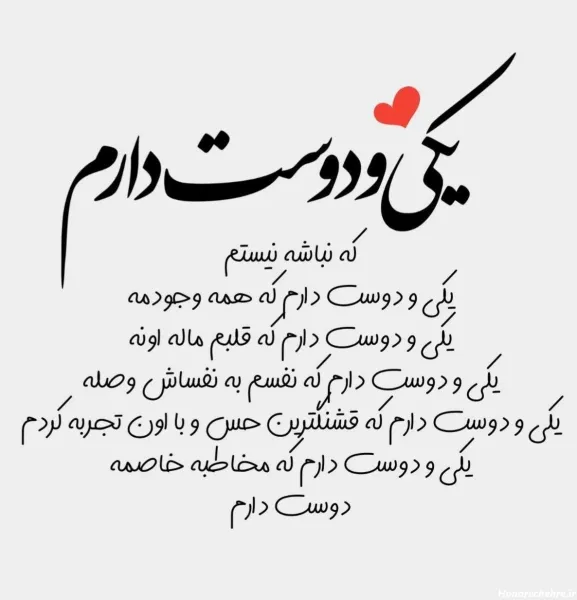 یکی و دوست دارم
که نباشه نیستم
یکی و دوست دارم که همه وجودمه
یکی و دوست دارم که قلبم ماله اونه
یکی و دوست دارم که نفسم به نفساش وصله
یکی و دوست دارم که قشنگترین حس و با اون تجربه کردم
یکی و دوست دارم که مخاطبه خاصمه
دوست دارم